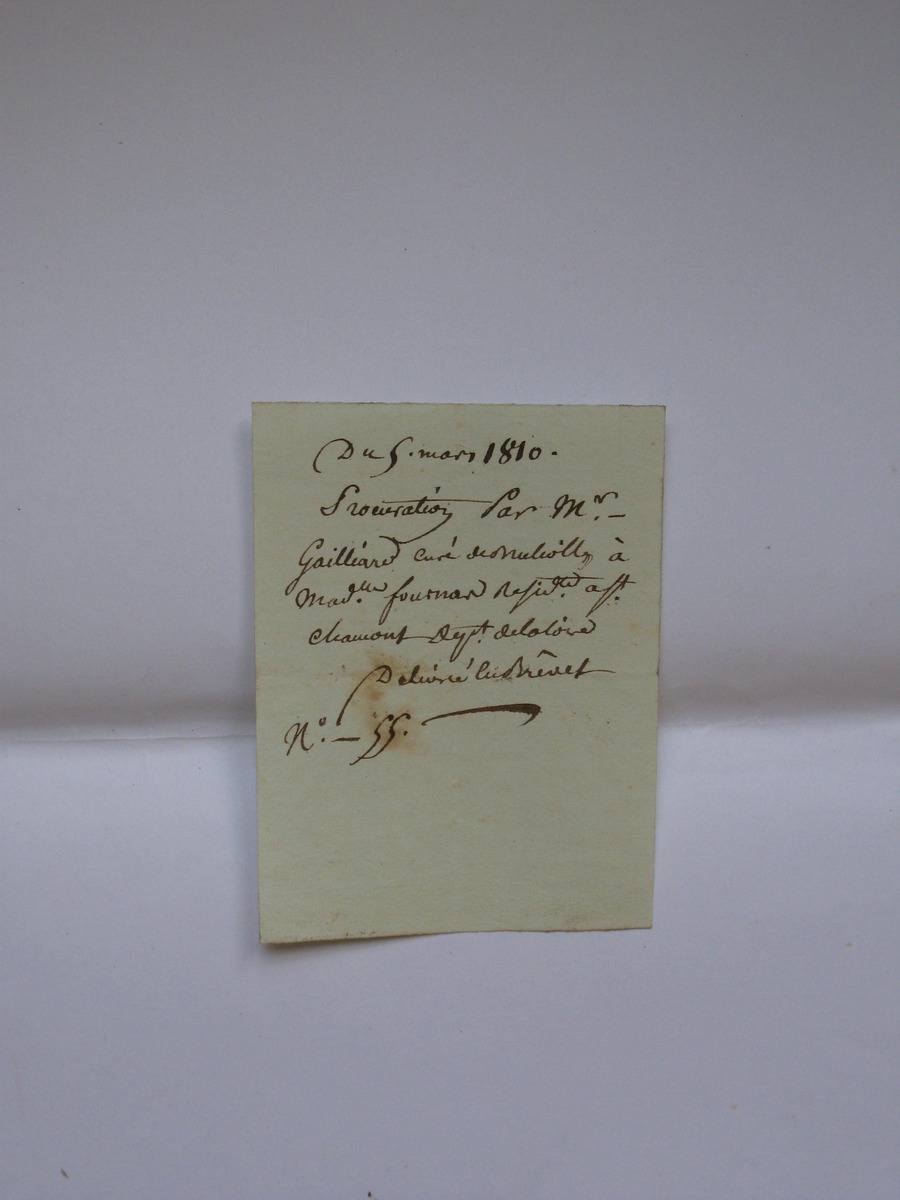 Du 5. mars 1810.
Procuration Par Mr. –
Gailliard curé de à
Madlle. fournas Residte. a St.
chamont Dept. delaloire
Delivré En Brêvet
No. – 55.